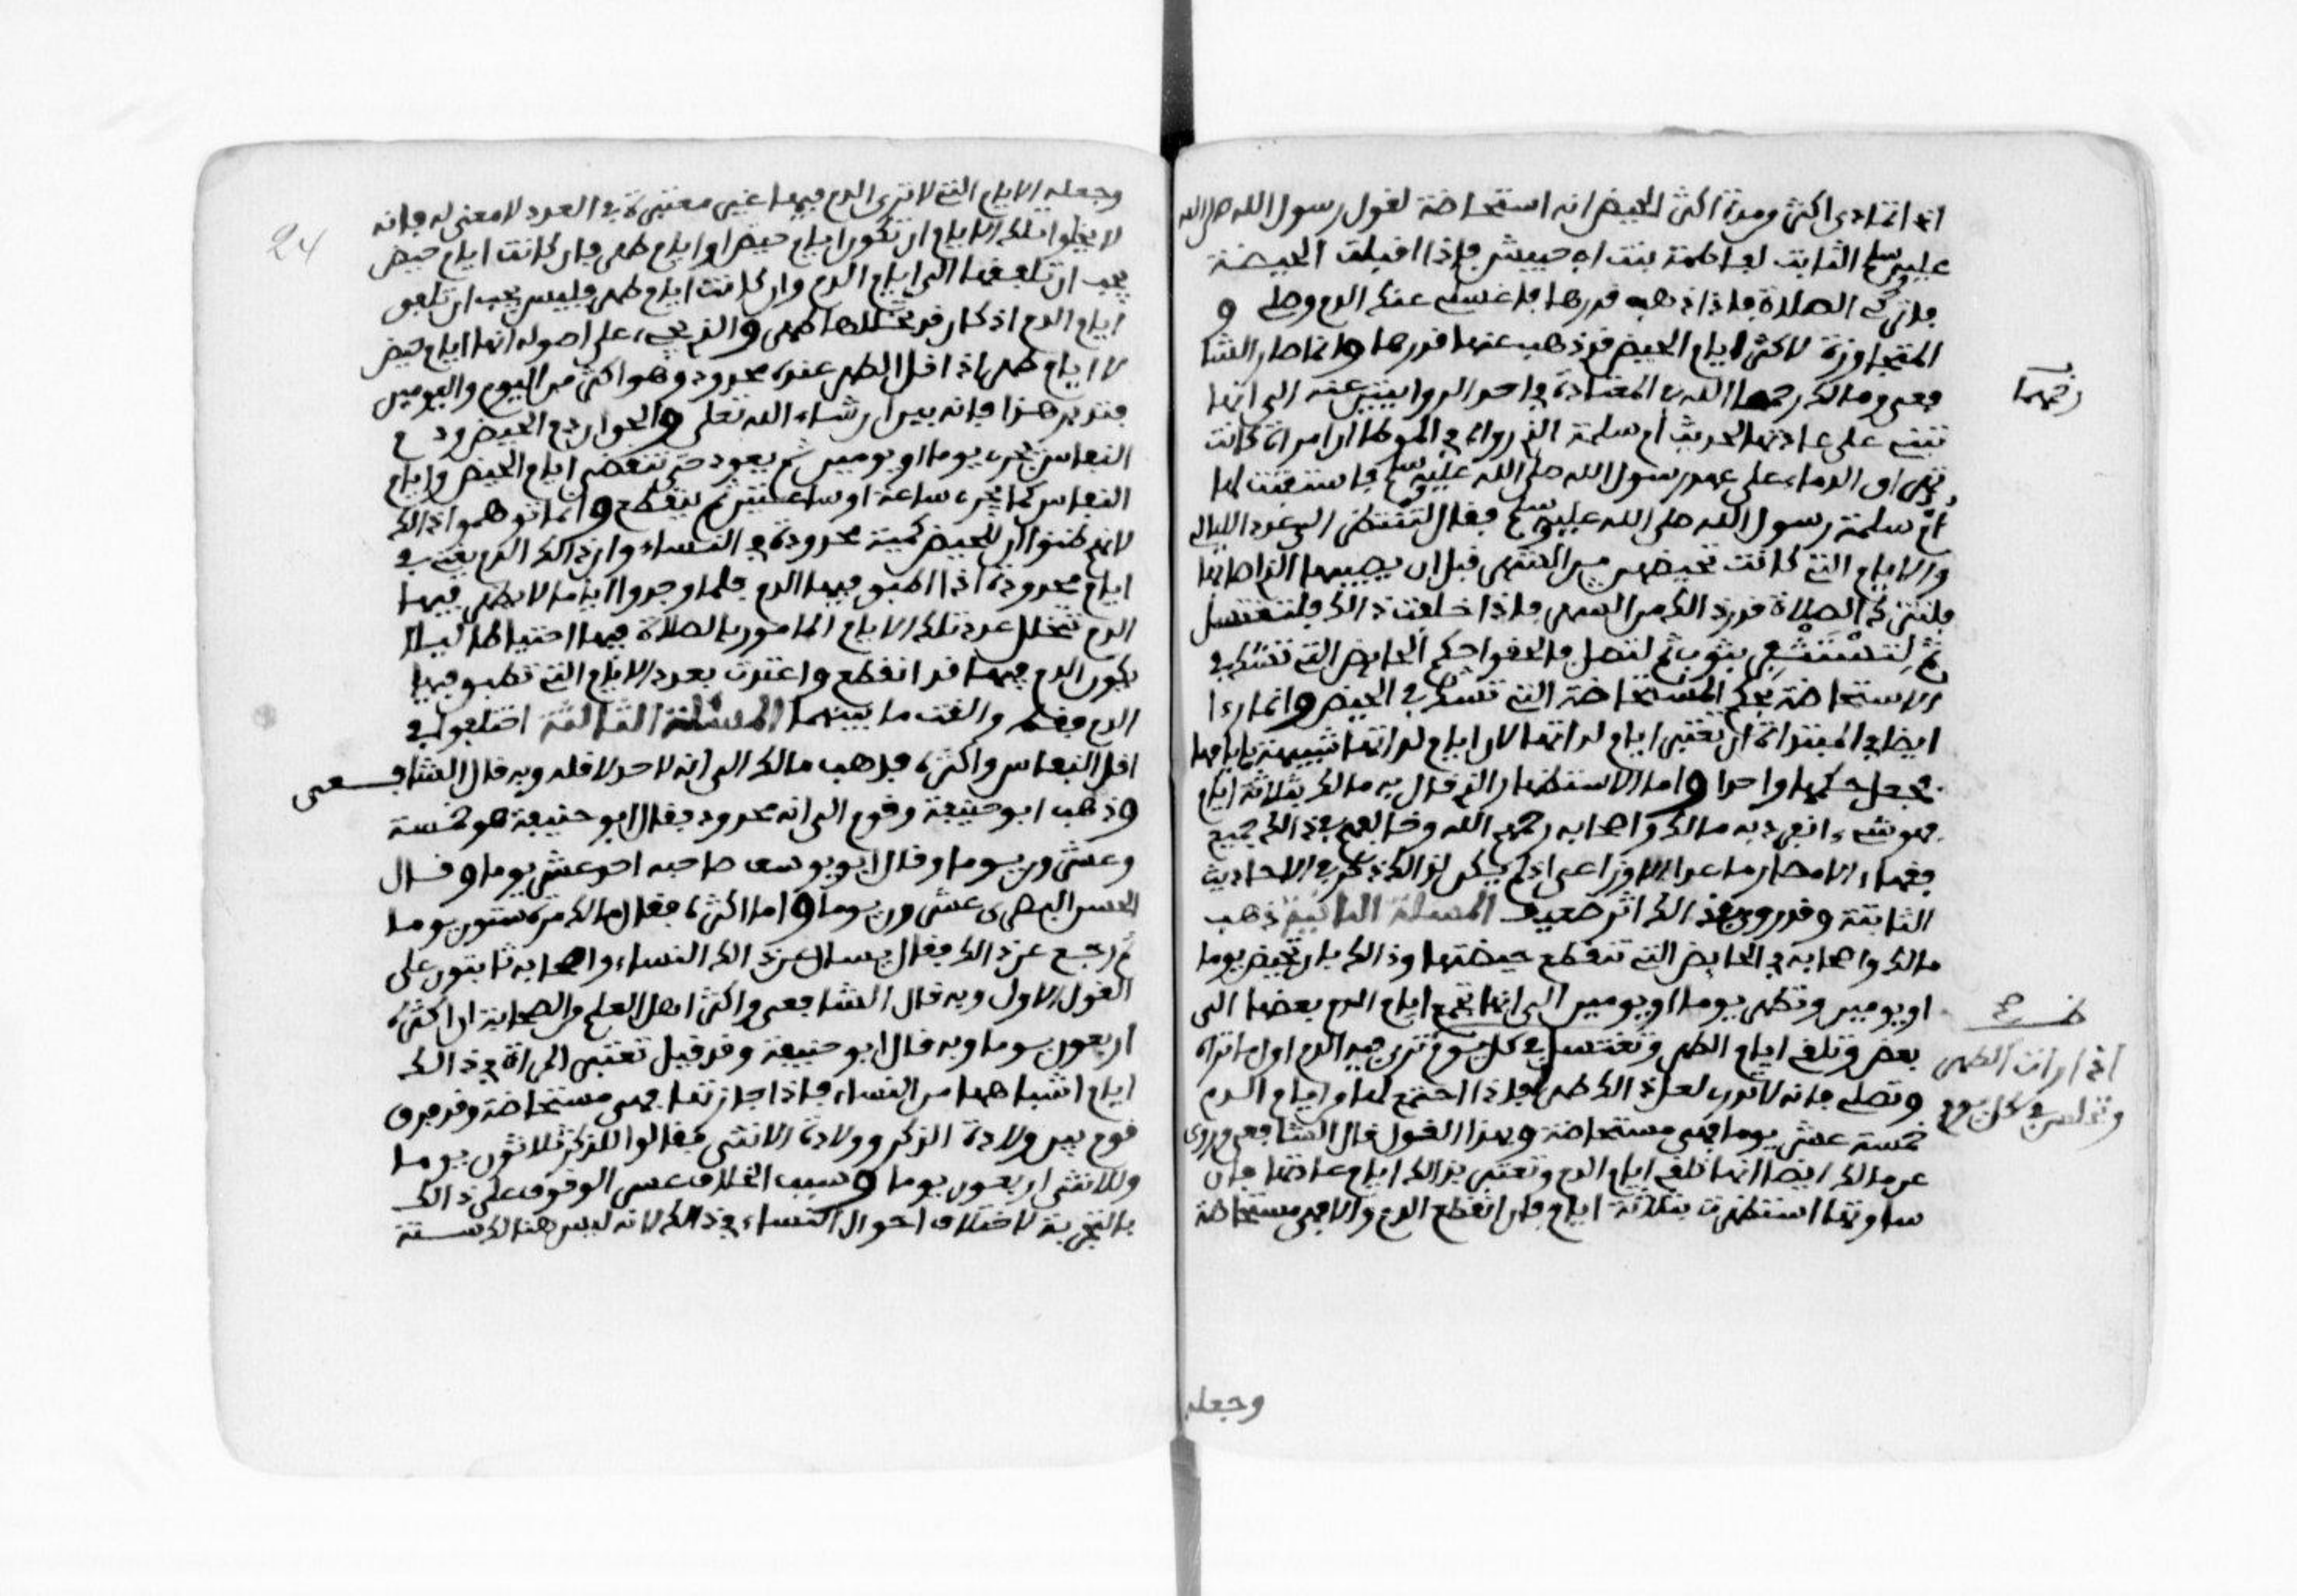 اذا تمادى اكثر ومدة اكثر الحيض انه استحاضة لقول رسول الله صلى الله
عليه وسلم الثابت لفاطمة بنت ابي حبيش فإذا اقبلت الحيضة
فاتركي الصلاة فإذا ذهب قدرها فاغسلي عنك الدم وصلي و
المتجاوزة لاكثر ايام الحيض قد ذهب عنها قدرها وانما صار الشا
فعي ومالك رحمهما الله في المعتادة في احدى الروايتين عنه الى انها
رحمهما
تبني على عادتها لحديث ام سلمة الذي رواه في الموطا ان امراة كانت
تهراق الدماء على عهد رسول الله صلى الله عليه وسلم فاستفتت لها
ام سلمة رسول الله صلى الله عليه وسلم فقال لتنظر الى عدد الليالي
والايام التي كانت تحيضهن من الشهر قبل ان يصيبها الذي اصابها
فلتترك الصلاة قدر ذالك من الشهر فإذا خلفت ذالك فلتغتسل
ثم لتستثفر بثوب ثم لتصل فالحقوا حكم الحايض التي تشك في
الاستحاضة بحكم المستحاضة التي تشك في الحيض وانما رءا
ايضا في المبتداة ان تعتبر ايام لداتها لان ايام لداتها شبيهة بايامها
فجعل حكمها واحدا واما الاستظهار الذي قال به مالك بثلاثة ايام
فهو شيء انفرد به مالك واصحابه رحمهم الله وخالفهم في ذالك جميع
فقهاء الامصار ما عدا الاوزاعي اذ لم يكن لذالك ذكر في الاحاديث
الثابتة وقد روي في ذالك اثر ضعيف المسئلة الثانية ذهب
مالك واصحابه في الحايض التي تنقطع حيضتها وذالك بان تحيض يوما
او يومين وتطهر يوما او يومين الى انها تجمع ايام الدم بعضها الى
بعض وتلغي ايام الطهر وتغتسل في كل يوم ترى فيه الدم اول ما تراه
اذا رات الطهر
وتصلي فانه لا تدري لعل ذالك طهر فإذا اجتمع لها من ايام الدم
خمسة عشر يوما فهي مستحاضة وبهذا القول قال الشافعي وروي
عن مالك ايضا انها تلفق ايام الدم وتعتبر بذالك ايام عادتها فإن
ساوتها استظهرت بثلاثة ايام فإن انقطع الدم والا فهي مستحاضة
وجعله
24
وجعله الايام التي لا ترى الدم فيها غير معتبرة في العدد لا معنى له فإنه
لا يخلوا تلك الايام ان تكون ايام حيض او ايام طهر فإن كانت ايام حيض
يجب ان تلفقها الى ايام الدم وان كانت ايام طهر فليس يجب ان تلفق
ايام الدم اذ كان قد تخللها طهر والذي يجيء على اصوله انها ايام حيض
لا ايام طهر اذ اقل الطهر عنده محدود وهو اكثر من اليوم واليومين
فتدبر هذا فإنه بين ان شاء الله تعلى والجواب ان دم الحيض ودم
النفاس يجري يوما او يومين ثم يعود حتى تنقضي ايام الحيض وايام
النفاس كما يجري ساعة او ساعتين ثم ينقطع وانما توهموا ذالك
لانهم ظنوا ان للحيض كمية محدودة في النساء وان ذالك الدم يعتبر في
ايام محدودة اذا اطبق فيها الدم فلما وجدوا اياما لا يظهر فيها
الدم تتخلل عدد تلك الايام المامور بالصلاة فيها احتياطا ليلا
يكون الدم فيها قد انقطع واعتدت بعدد الايام التي تطبق فيها
الدم فقط والغت ما بينهما المسئلة الثالثة اختلفوا في
اقل النفاس واكثره فذهب مالك الى انه لا حد لاقله وبه قال الشافعي
وذهب ابو حنيفة وقوم الى انه محدود فقال ابو حنيفة هو خمسة
وعشرون يوما وقال ابو يوسف صاحبه احد عشر يوما وقال
الحسن البصري عشرون يوما واما اكثره فقال مالك مرة ستون يوما
ثم رجع عن ذالك فقال يسال عن ذالك النساء واصحابه ثابتون على
القول الاول وبه قال الشافعي واكثر اهل العلم من الصحابة ان اكثره
اربعون يوما وبه قال ابو حنيفة وقد قيل تعتبر المراة في ذالك
ايام اشباهها من النساء فإذا جاوزتها فهي مستحاضة وفرق
قوم بين ولادة الذكر وولادة الانثى فقالوا للذكر ثلاثون يوما
وللانثى اربعون يوما وسبب الخلاف عسر الوقوف على ذالك
بالتجربة لاختلاف احوال النساء في ذالك لانه ليس هنالك سنة